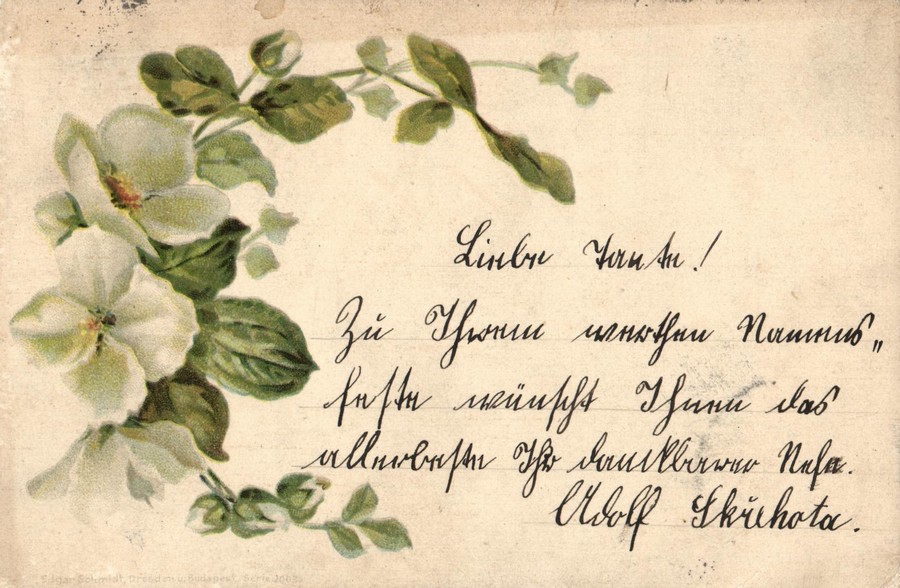 Liebe Tante!
Zu Ihrem werthen Namens„
feste wünscht Ihnen das
allerbeste Ihr dankbarer Nefe.
Adolf Skřehota.
Edgar Schmidt, Dresden u. Budapest. Serie